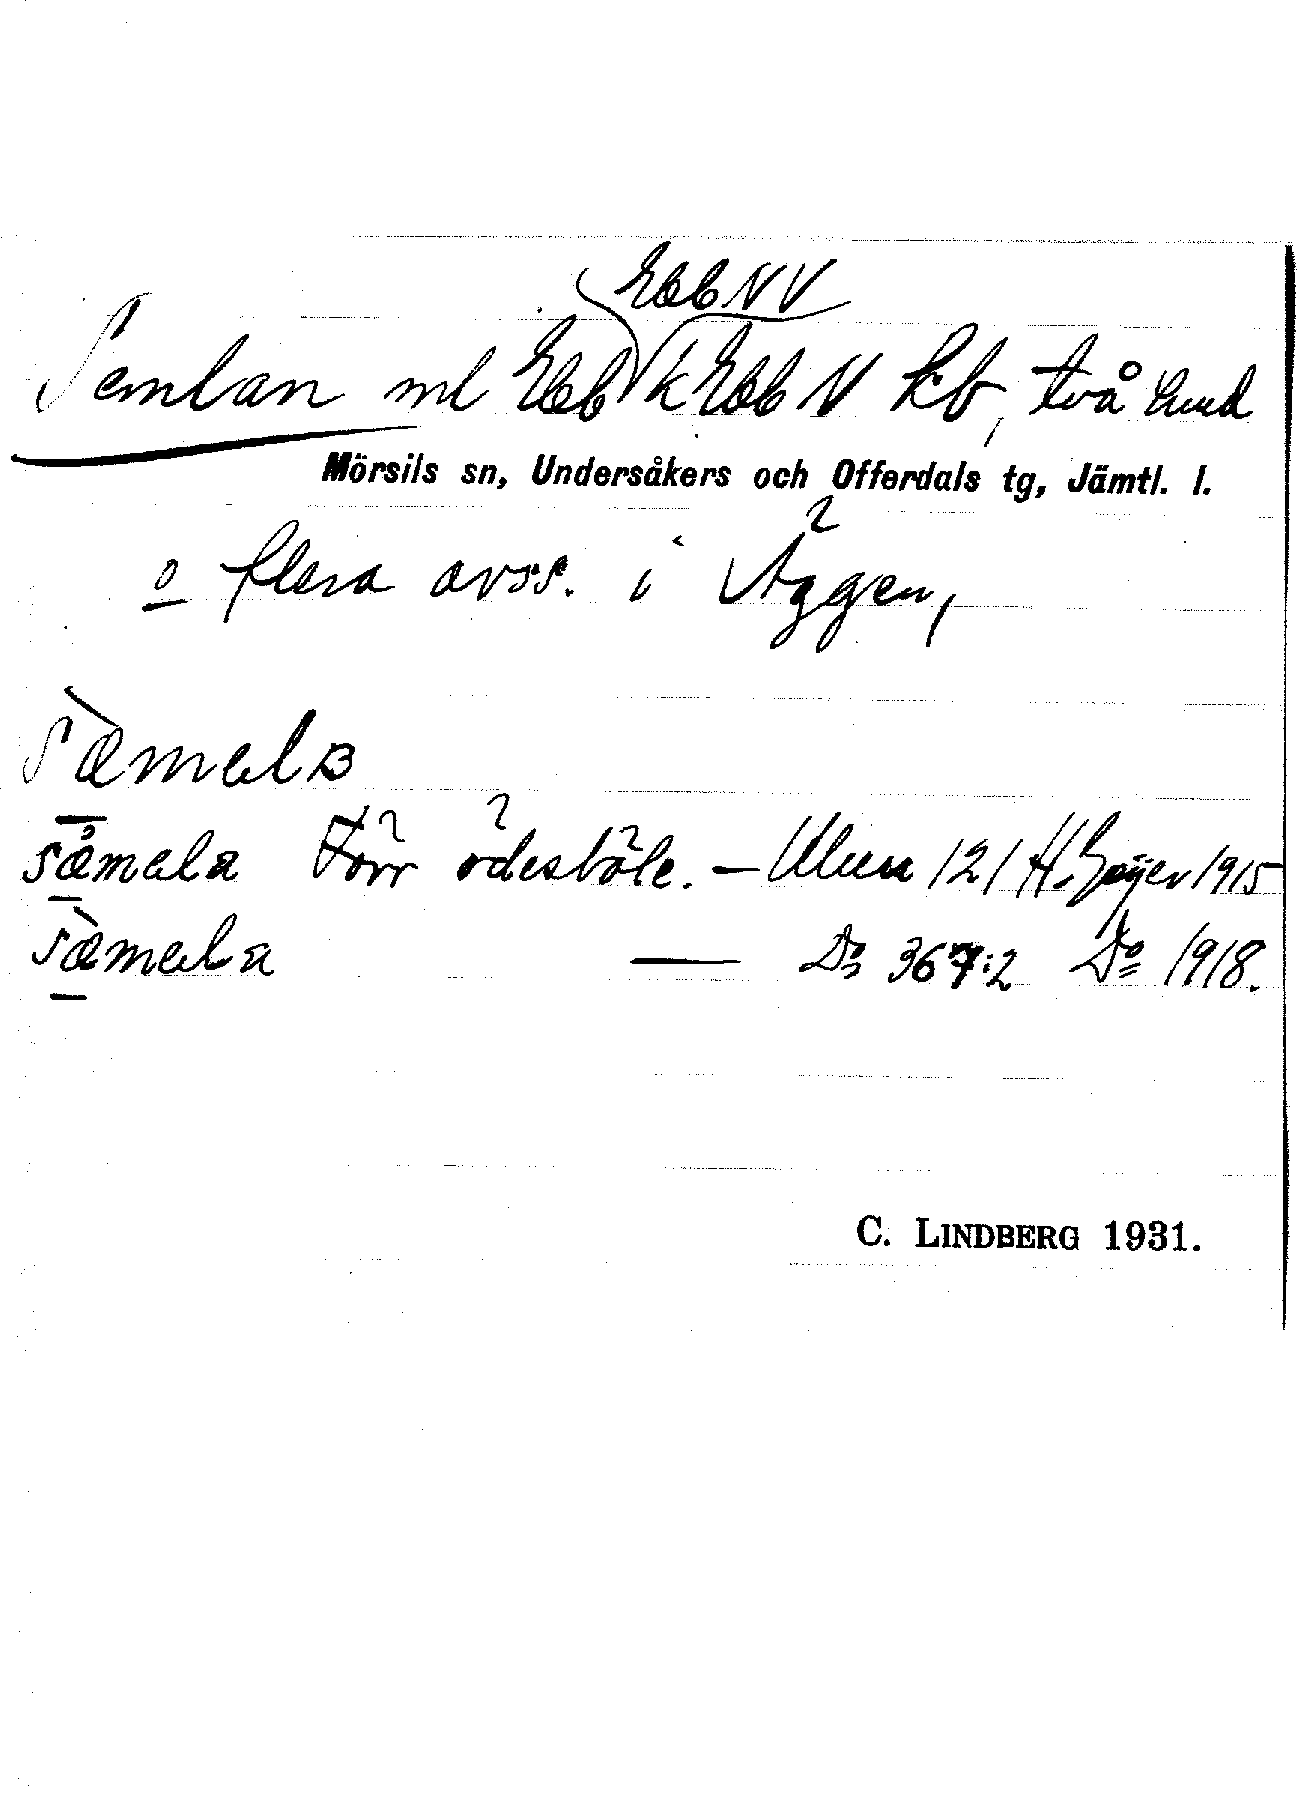 Ebb NV
Semlan ml Ebb k Ebb N kb, två hmd
Mörsils sn, Undersåkers och Offerdals tg, Jämtl. l.
o flera avss. i Äggen,
sæmala
sæmala Förr ödesböle. — Ulma 121 H. Geijer 1915
sæmala — Do 367:2 Do 1918.
C. LINDBERG 1931.